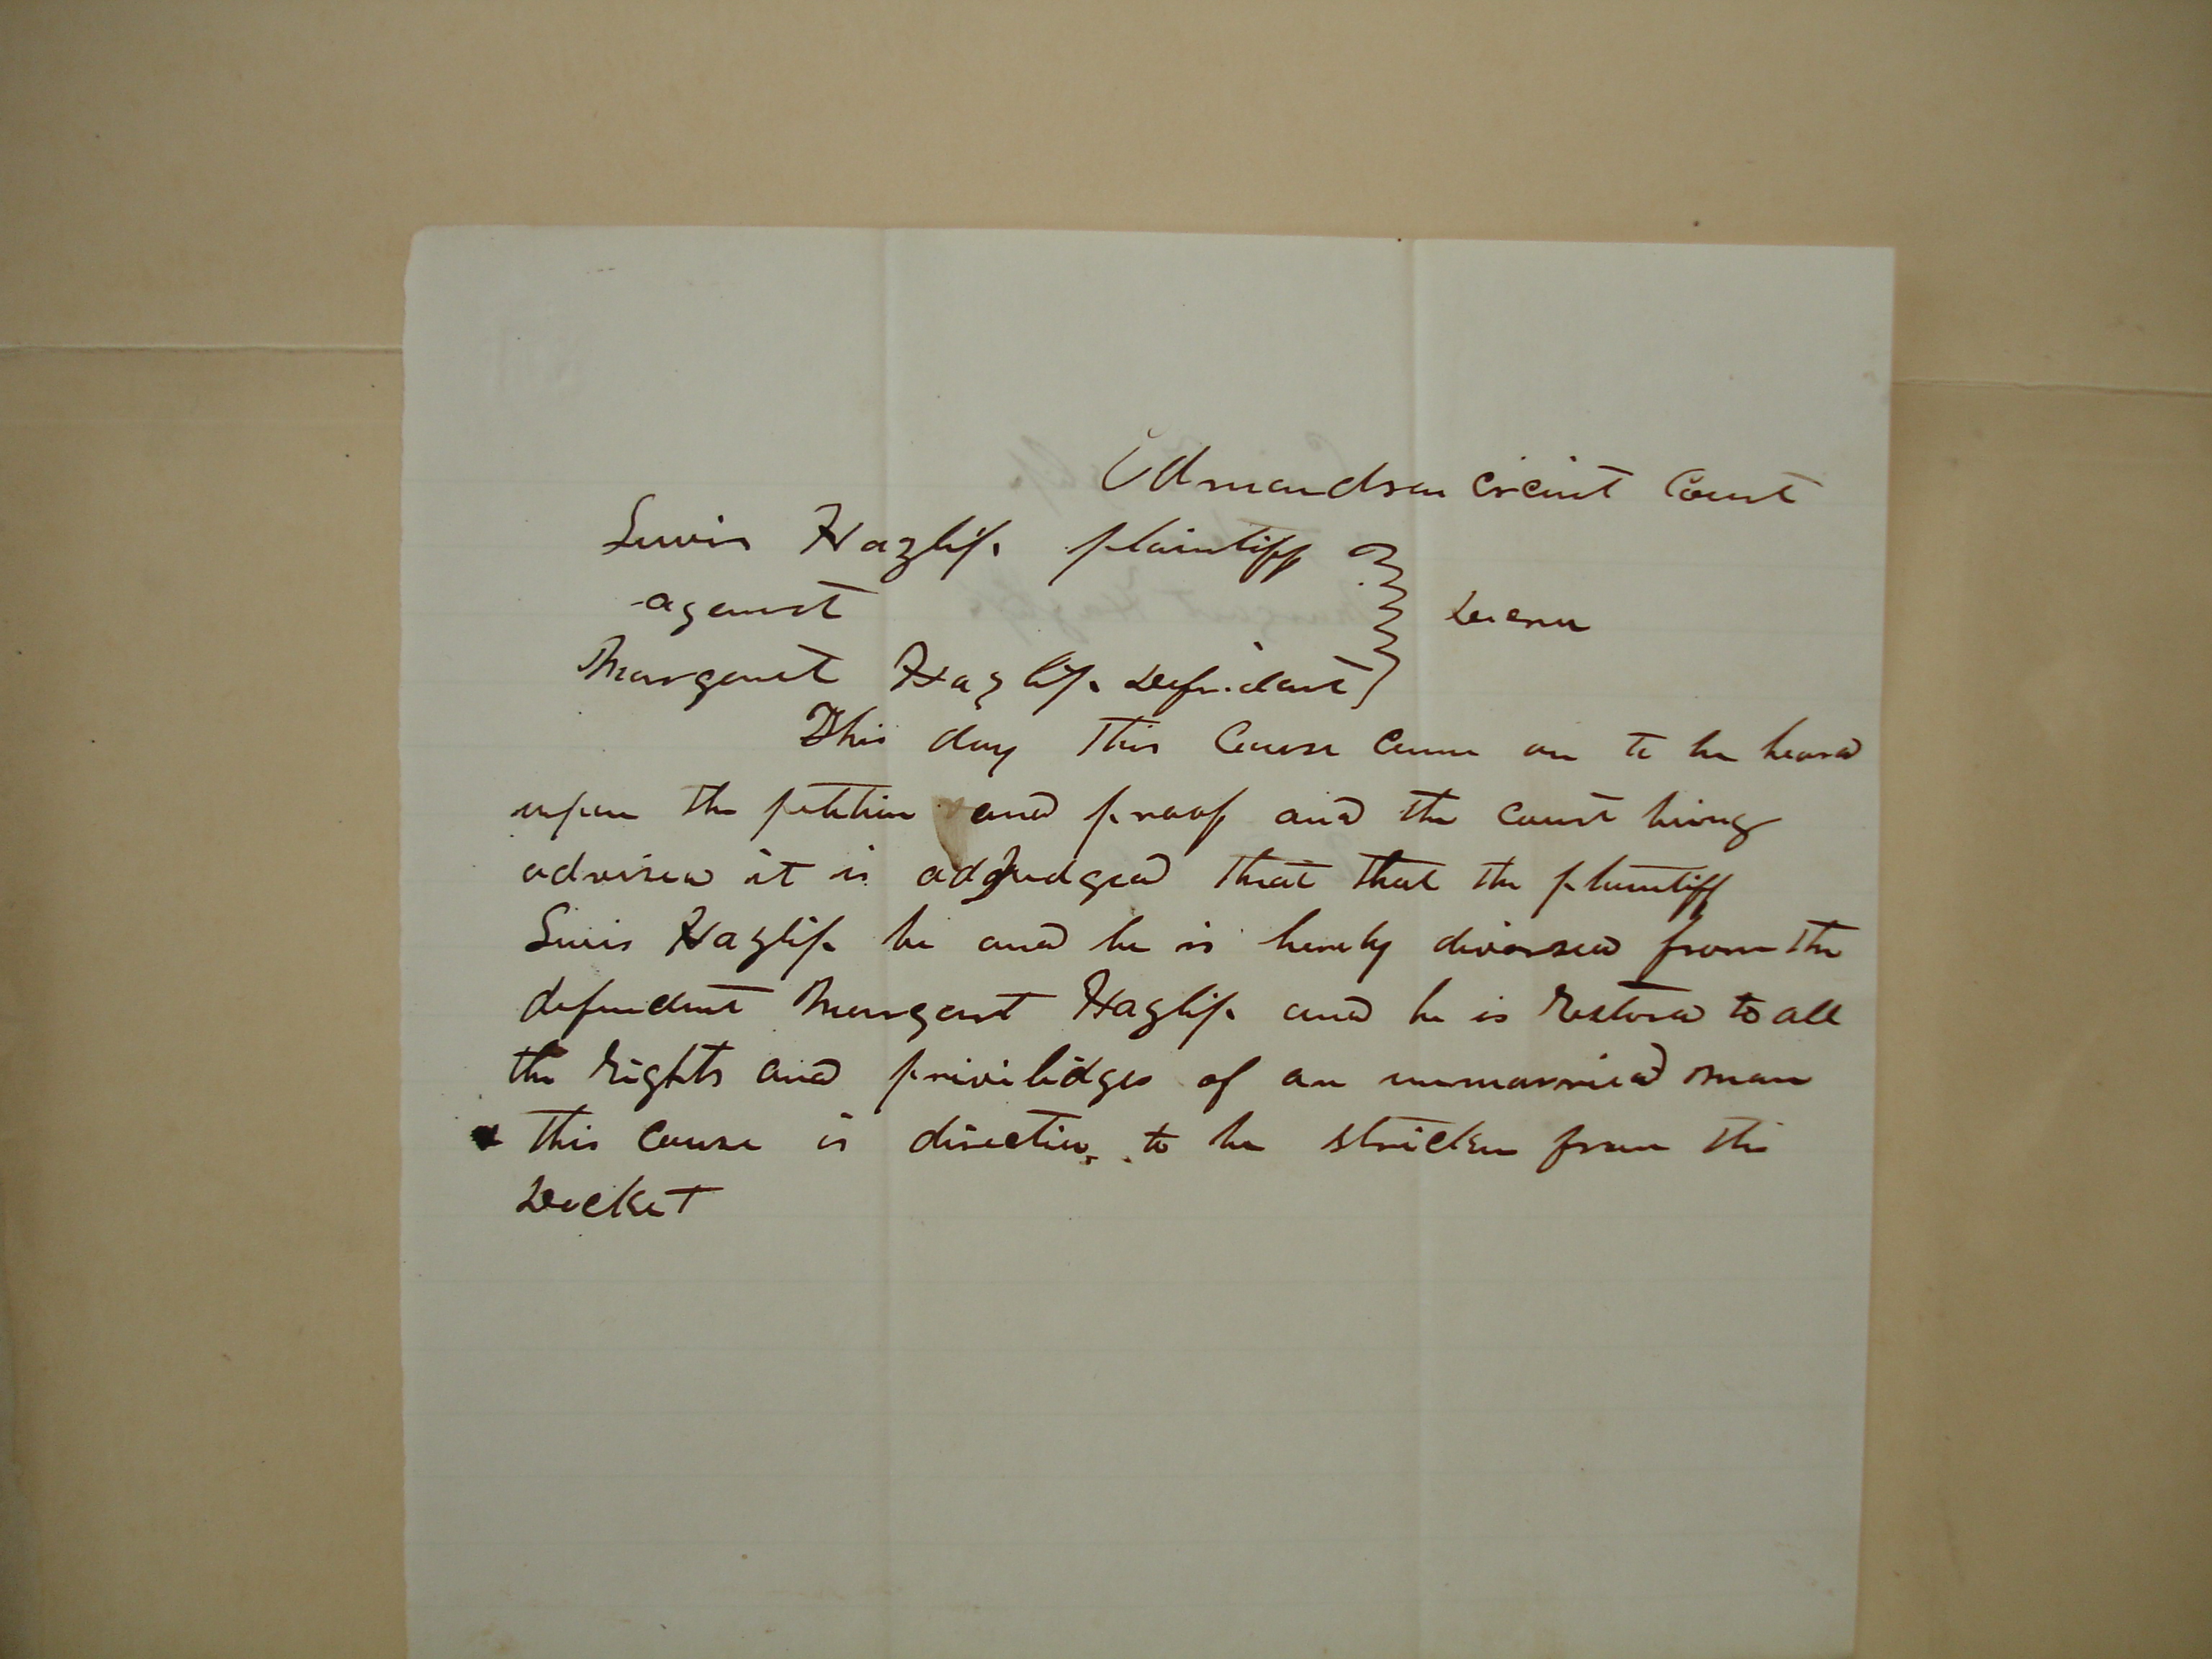 Edmondson circuit Court
Lewis Hazlip plaintiff
against Decree
Margaret Hazlip Defendant
This day this Cause came on to be heard
upon the petition and proof and the court being
advised it is adjudged that that the plaintiff
Lewis Hazlip be and he is hereby divorsed from the
defendant Margaret Hazlip and he is restored to all
the rights and privilidges of an unmarried man
This cause is directed to be stricken from the
Docket